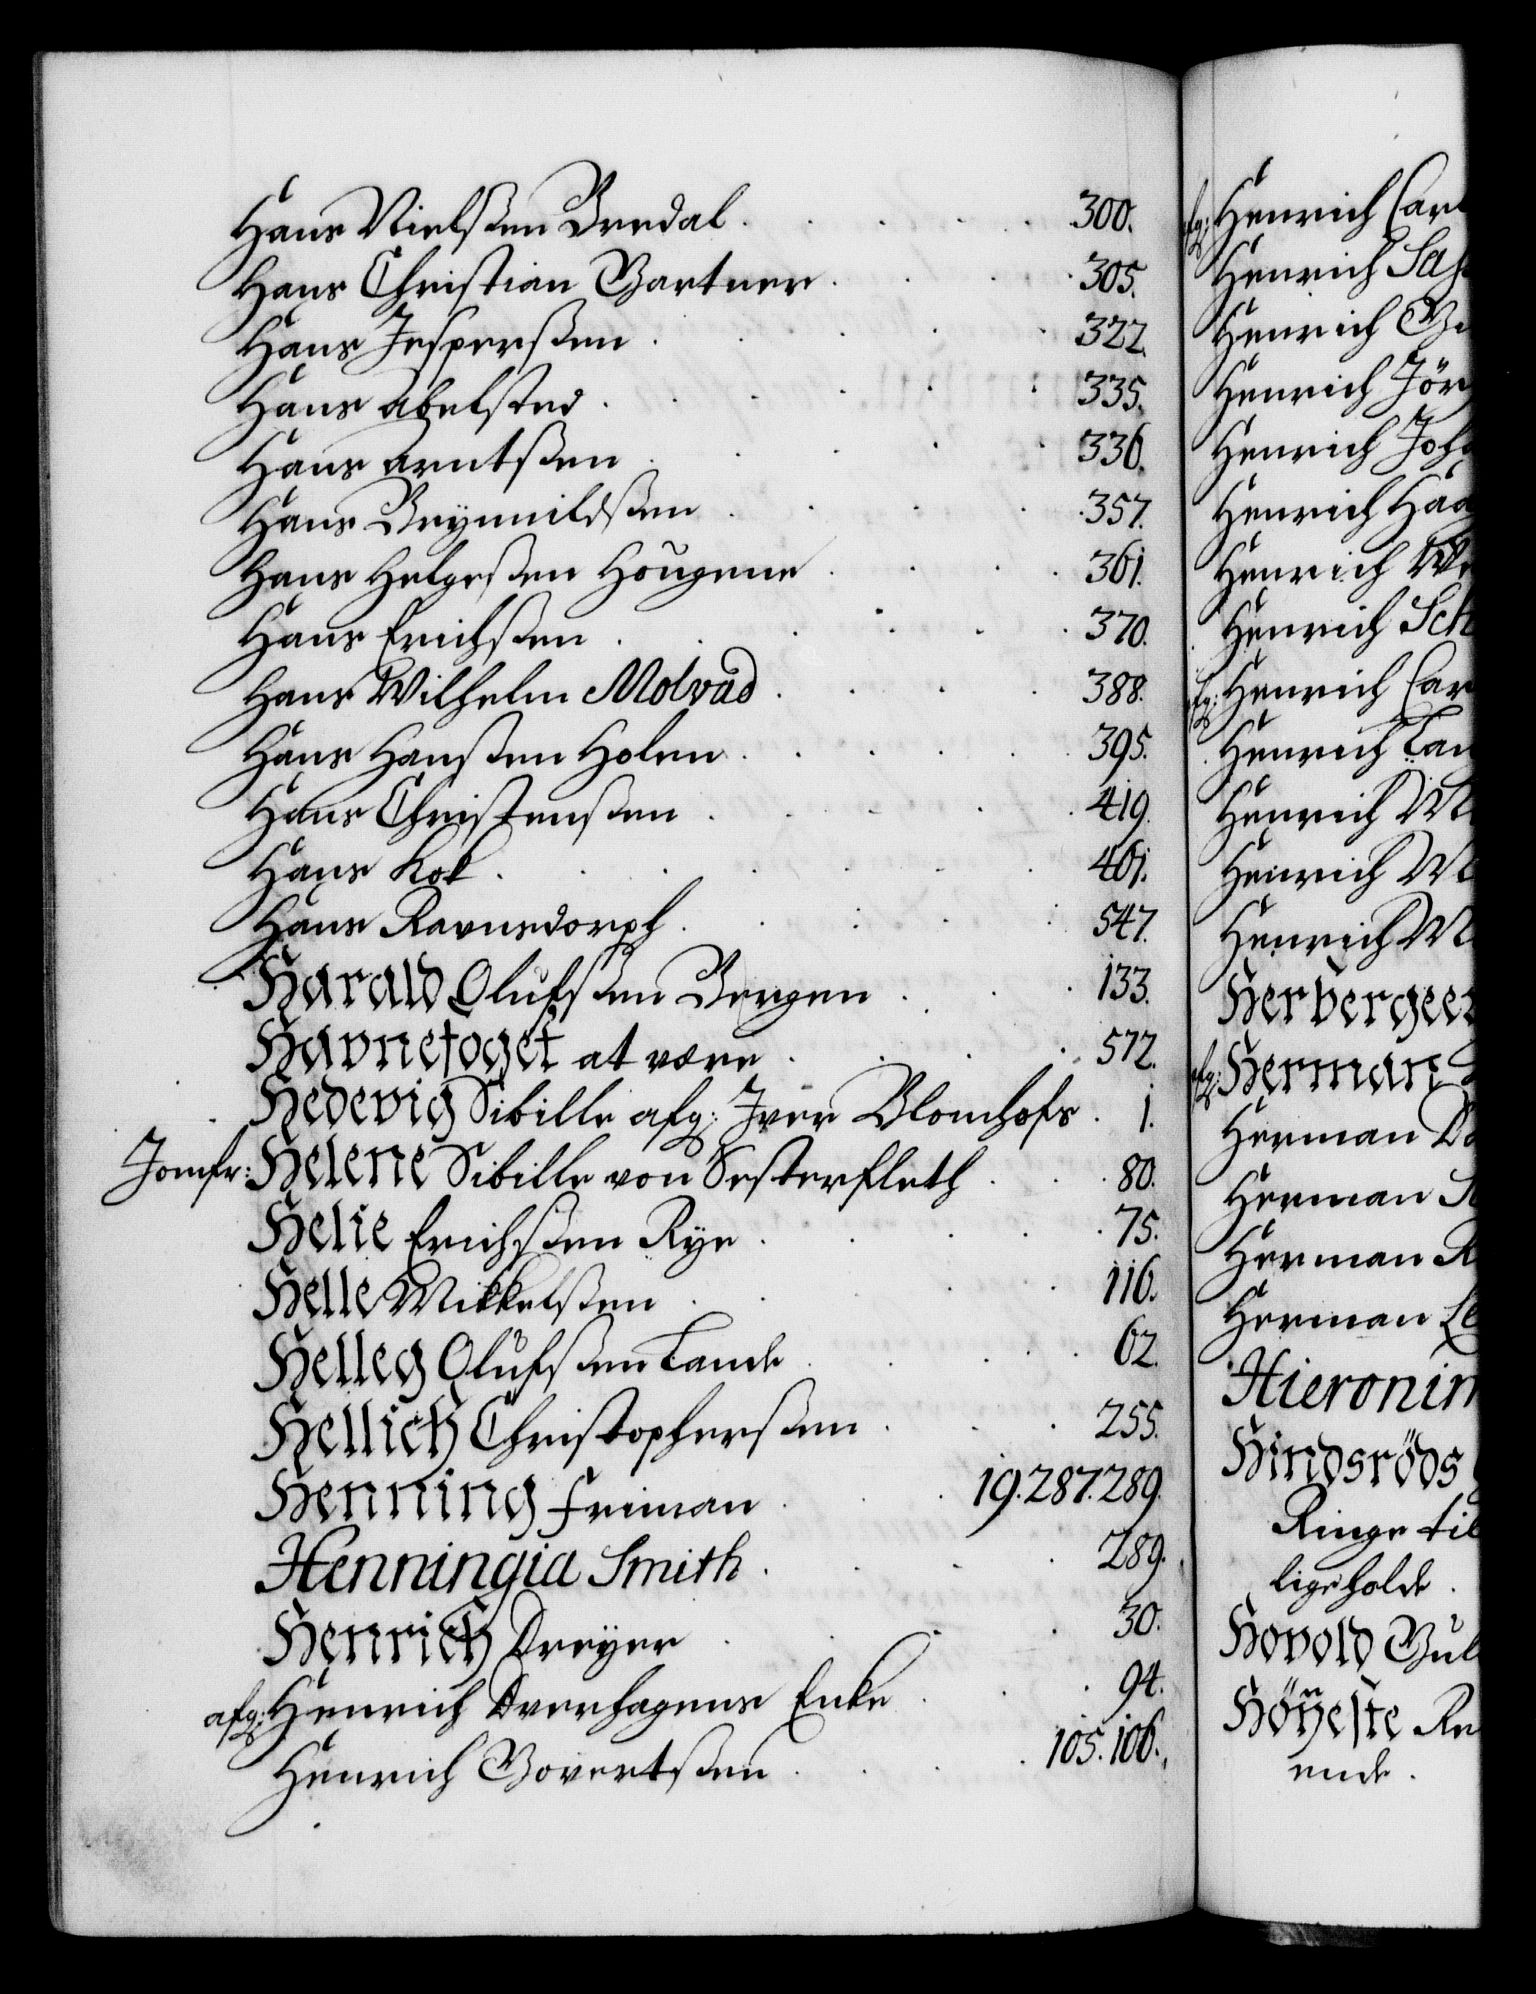 Hans Nielsßen Bredal . . . . . 300.
Hans Christian Gartner . . . . 305.
Hans Jesperßen . . . . . 322.
Hans Abelsted . . . . . 335.
Hans Arntsßen . . . . . 336.
Hans Brynnildsßen . . . . 357.
Hans Helgesßen Hougene . . . . 361.
Hans Erichsßen . . . . . 370.
Hans Wilhelm Molvad . . . . 388.
Hans Hansßen Holen . . . . . 395.
Hans Christensßen . . . . . 419.
Hans Kok . . . . . . 461.
Hans Ravnsdorph . . . . . 547.
Harald Olufsßen Bergen . . . 133.
Havnefoget at være . . . . 572.
Hedevig Sibille afg: Iver Blomhofs . 1.
Jomfr: Helene Sibille von Sesterfleth . . . 80.
Helie Erichsßen Rye . . . . . 75.
Helle Mikkelsßen . . . . . 116.
Helleg Olufsßen Lande . . . . 62.
Hellich Christophersßen . . . 255.
Henning Friman . . . 19. 287. 289.
Henningia Smith . . . . . 289.
Henrich Dreyer . . . . . 30.
afg: Henrich Overhagens Enke . . . 94.
Henrich Govertsßen . . . . 105. 106.
afg: Henrich Car
Henrich
Henrich
Henrich Jör
Henrich Joh
Henrich Haa
Henrich We
Henrich Sch
afg: Henrich Car
Henrich Lan
Henrich
Henrich
Henrich
Herbergeer
afg: Herman
Herman
Herman
Herman
Herman Le
Hieronim
Hindsröds
Ringe til
ligeholde .
Hovold Gul
Höyeste Re
ende .